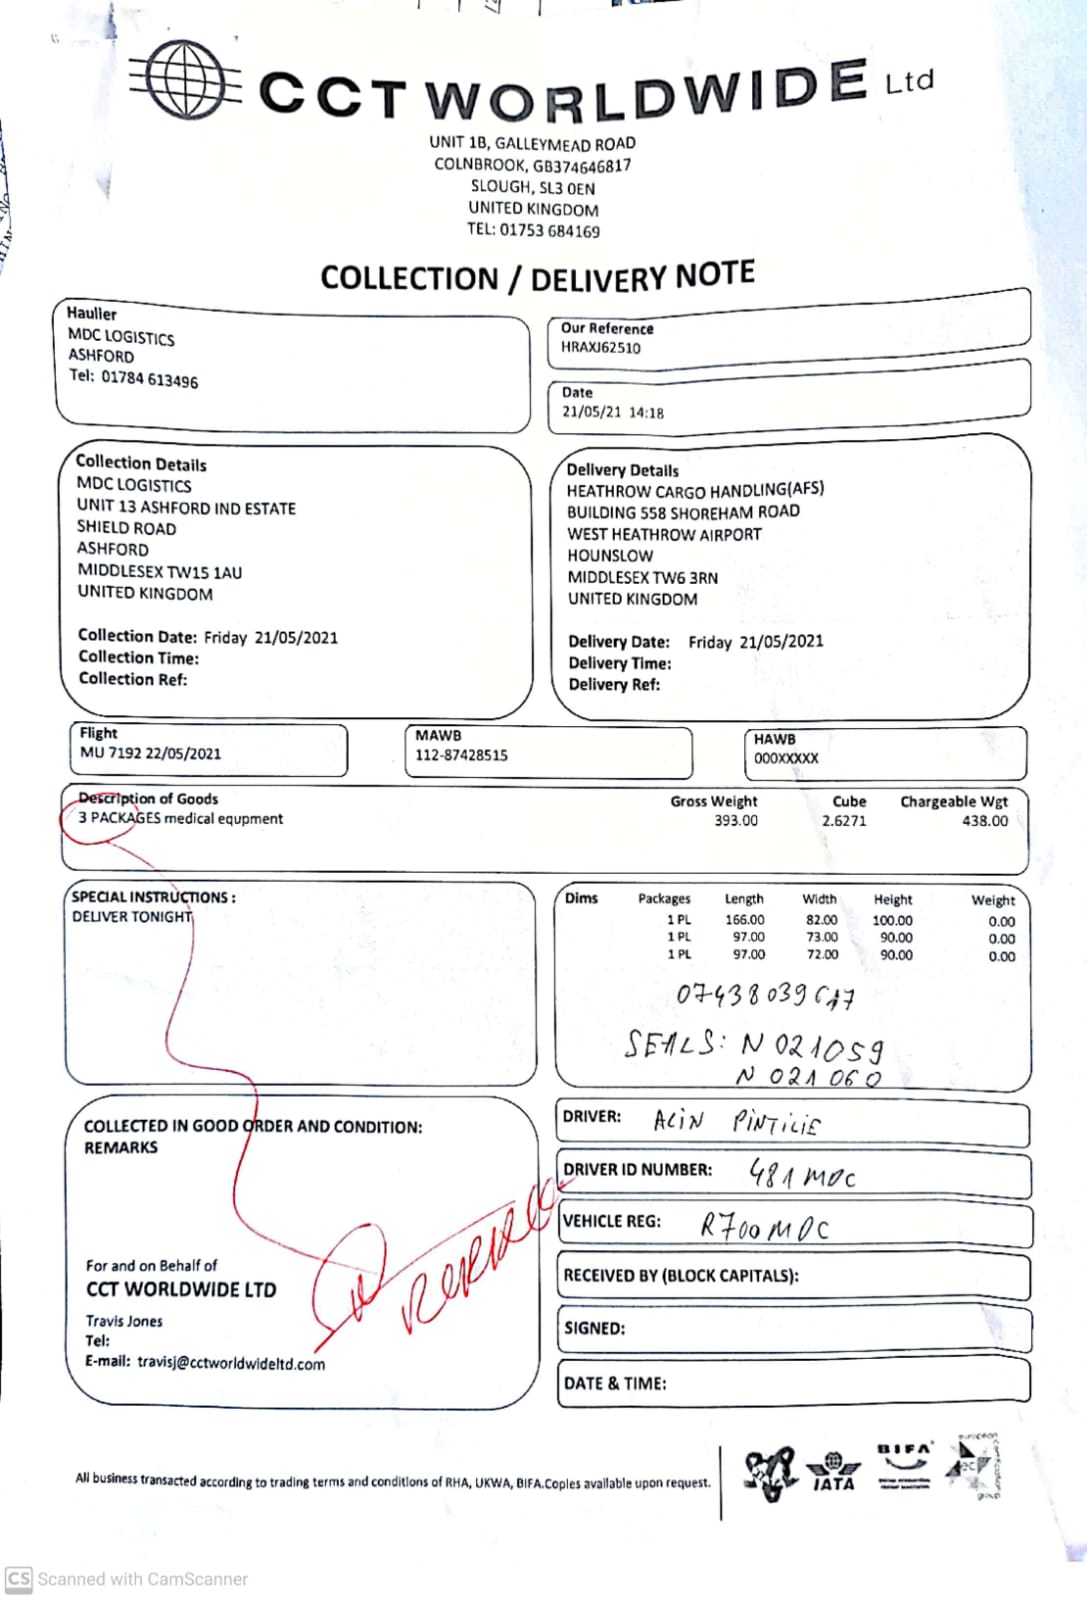 CCT WORLDWIDE Ltd
UNIT 1B, GALLEYMEAD ROAD
COLNBROOK, GB374646817
SLOUGH, SL3 0EN
UNITED KINGDOM
TEL: 01753 684169
COLLECTION / DELIVERY NOTE
Haulier
MDC LOGISTICS
ASHFORD
Tel: 01784 613496
Our Reference
HRAXJ62510
Date
21/05/21 14:18
Collection Details
MDC LOGISTICS
UNIT 13 ASHFORD IND ESTATE
SHIELD ROAD
ASHFORD
MIDDLESEX TW15 1AU
UNITED KINGDOM
Collection Date: Friday 21/05/2021
Collection Time:
Collection Ref:
Delivery Details
HEATHROW CARGO HANDLING(AFS)
BUILDING 558 SHOREHAM ROAD
WEST HEATHROW AIRPORT
HOUNSLOW
MIDDLESEX TW6 3RN
UNITED KINGDOM
Delivery Date: Friday 21/05/2021
Delivery Time:
Delivery Ref:
Flight
MU 7192 22/05/2021
MAWB
112-87428515
HAWB
000XXXXX
Description of Goods Gross Weight Cube Chargeable Wgt
3 PACKAGES medical equpment 393.00 2.6271 438.00
SPECIAL INSTRUCTIONS :
DELIVER TONIGHT
Dims Packages Length Width Height Weight
1 PL 166.00 82.00 100.00 0.00
1 PL 97.00 73.00 90.00 0.00
1 PL 97.00 72.00 90.00 0.00
SEALS: N 021059
N 021060
COLLECTED IN GOOD ORDER AND CONDITION:
REMARKS
For and on Behalf of
CCT WORLDWIDE LTD
Travis Jones
Tel:
E-mail: travisj@cctworldwideltd.com
DRIVER: ALIN PINTILIE
DRIVER ID NUMBER: 481MDC
VEHICLE REG: R700MDC
RECEIVED BY (BLOCK CAPITALS):
SIGNED:
DATE & TIME:
All business transacted according to trading terms and conditions of RHA, UKWA, BIFA.Copies available upon request.
IATA
BIFA
CS Scanned with CamScanner